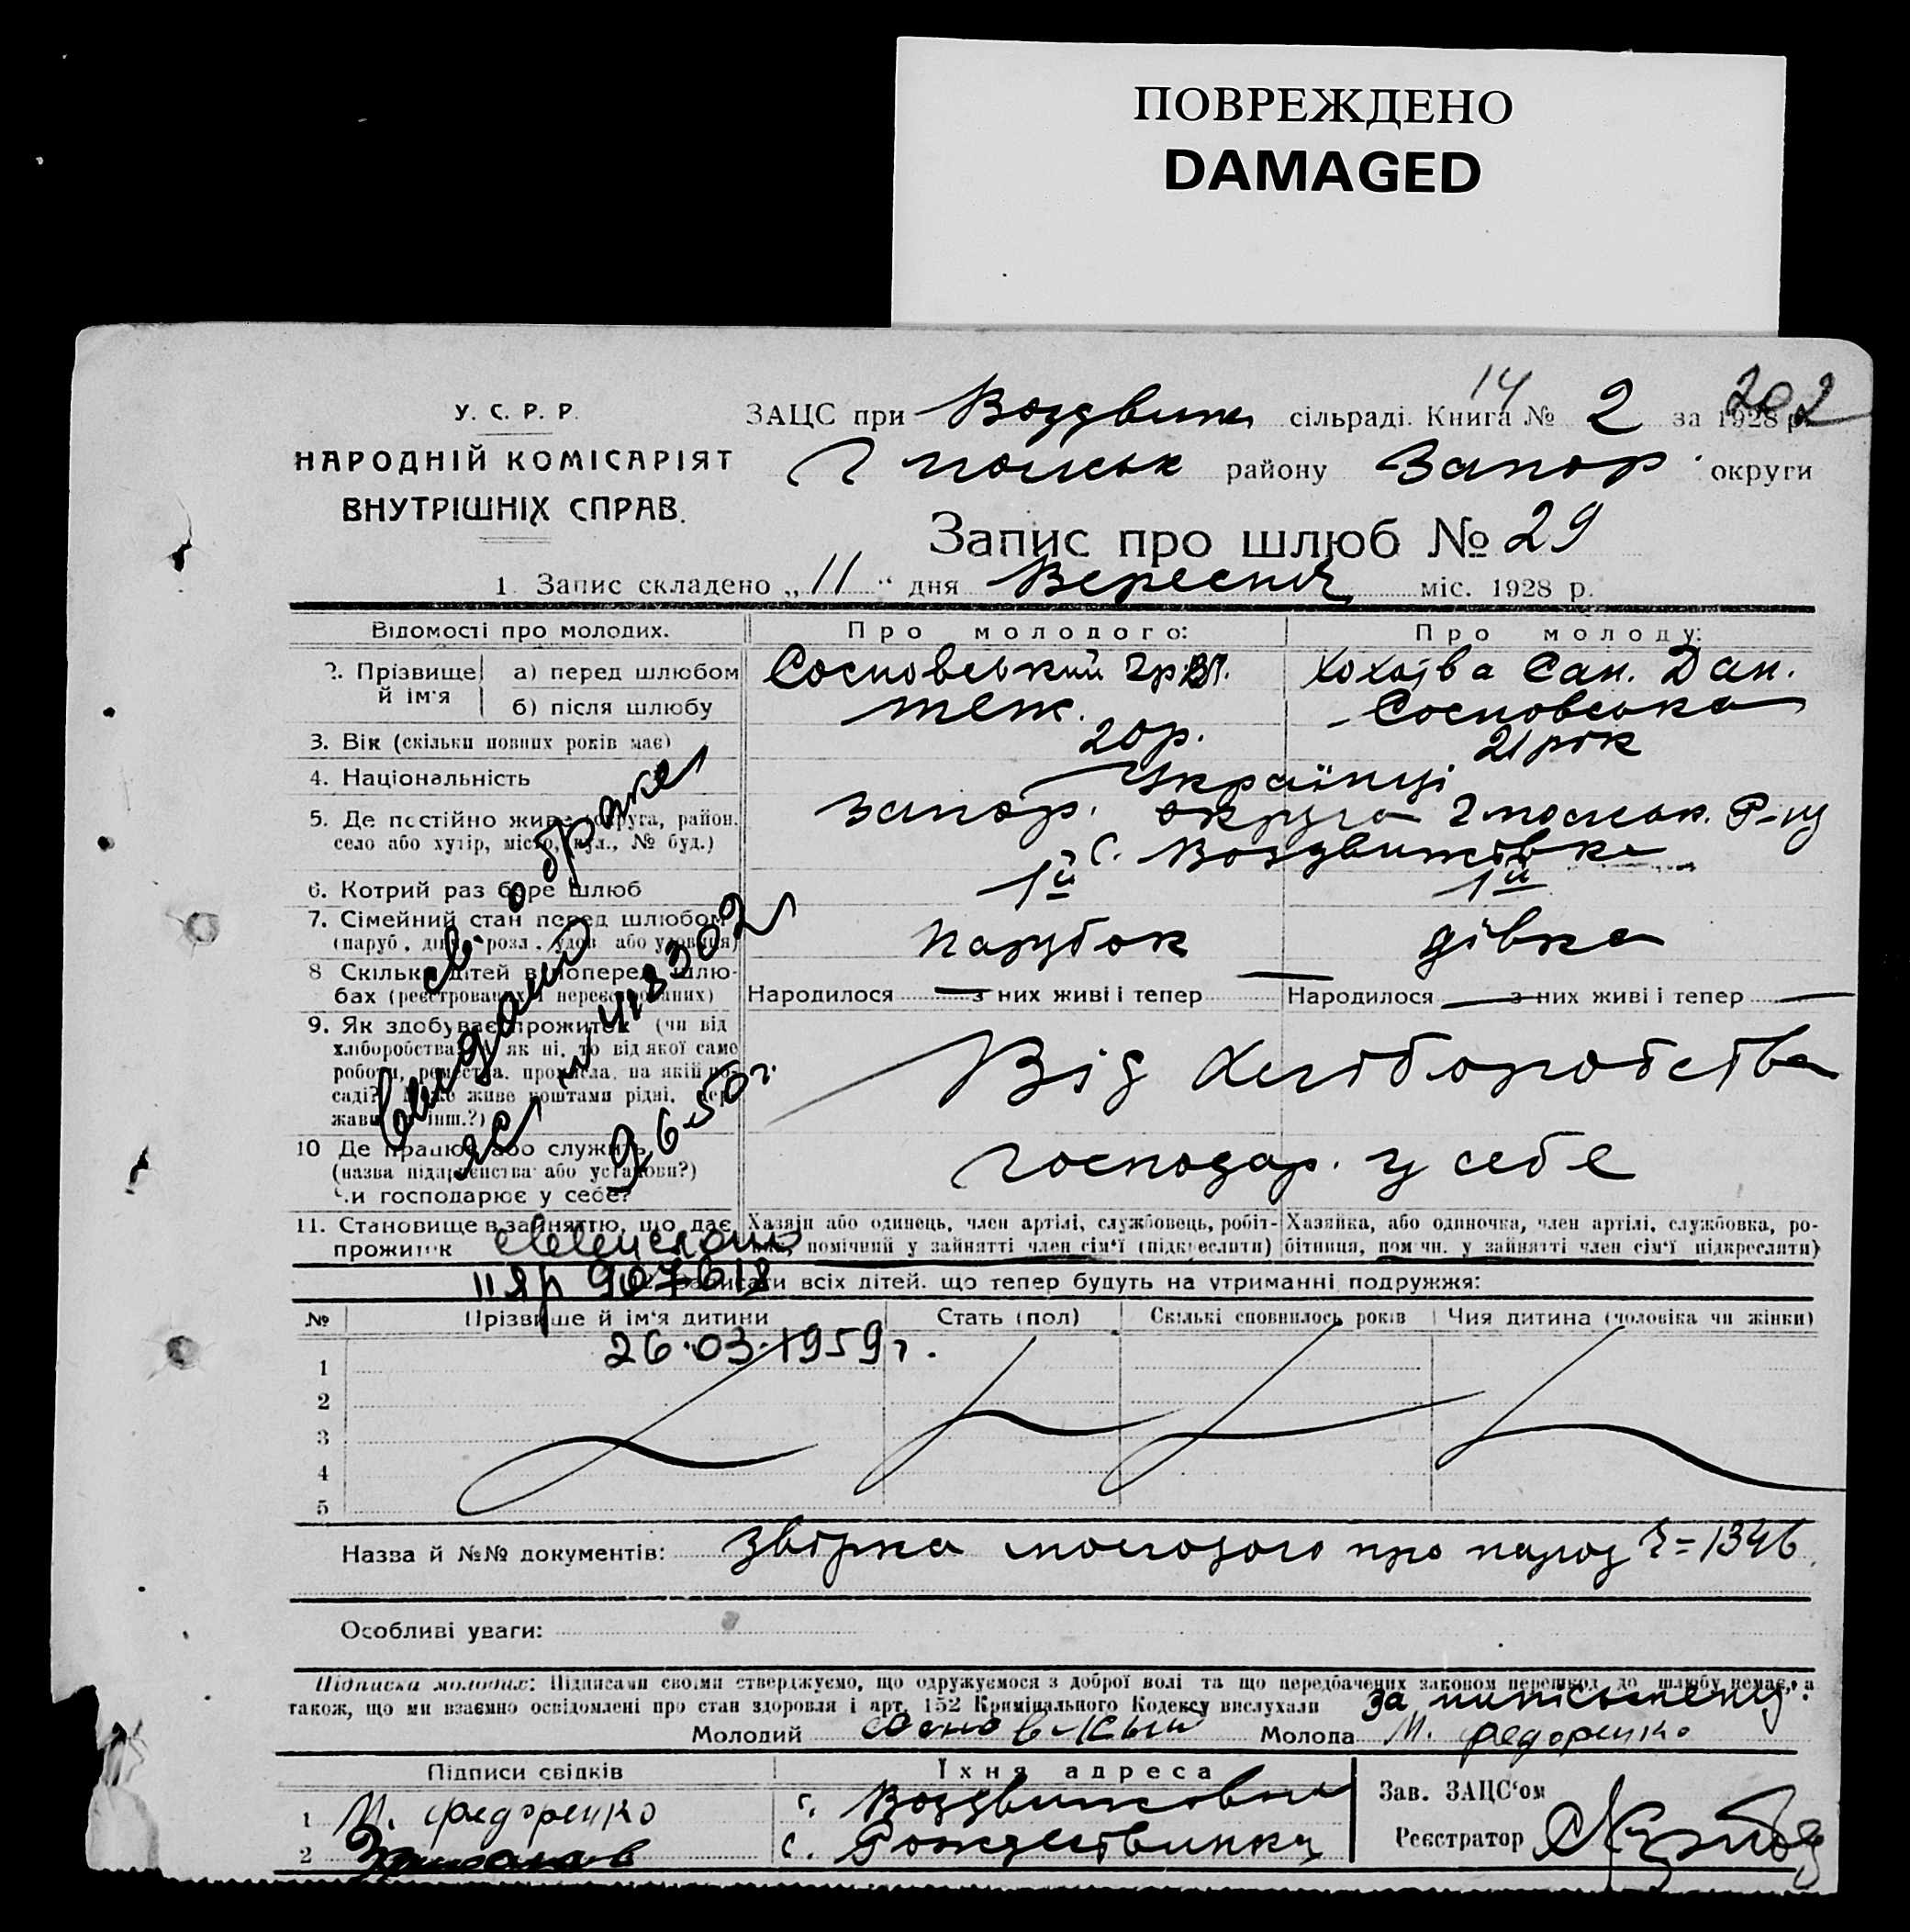 ПОВРЕЖДЕНО
DAMAGED
14 202
У. С. Р. Р.
НАРОДНІЙ КОМІСАРІЯТ
ВНУТРІШНІХ СПРАВ.
ЗАЦС при Воздвиж сільраді. Книга № 2 за 1928 р.
району Запор. округи
Запис про шлюб № 29
1. Запис складено „11“ дня Вересня міс. 1928 р.
Відомості про молодих. Про молодого: Про молоду:
2. Прізвище й ім'я а) перед шлюбом Сосновський Гр. Дан.
б) після шлюбу теж. Сосновська
3. Вік (скільки повних років має) 20 р. 21 рік
4. Національність Українці
5. Де постійно живе (округа, район, Запор. округа Р-ну
село або хутір, місто, вул., № буд.) с. Воздвижівка
6. Котрий раз бере шлюб 1й 1й
7. Сімейний стан перед шлюбом Парубок дівка
(паруб., дівч., розл., удов. або удовиця)
8 Скільки дітей в попередн. шлю-
бах (реєстрованих і нереєстрованих) Народилося — з них живі і тепер Народилося — з них живі і тепер —
9. Як здобуває прожиток (чи від Від хліборобства
хліборобства, а як ні, то від якої саме
роботи, ремества, промисла, на якій по-
саді? Може живе коштами рідні, дер-
жави й інш.?)
10 Де працює або служить господар. у себе
(назва підприємства або установи?)
Чи господарює у себе?
11. Становище в зайняттю, що дає прожиток
Хазяїн або одинець, член артілі, службовець, робіт-
ник, помічний у зайнятті член сім'ї (підкреслити)
Хазяйка, або одиночка, член артілі, службовка, ро-
бітниця, помічн. у зайнятті член сім'ї підкреслити)
видано св о браке
9 6-50 г.
11 ЯР 907618
26.03.1959 г.
писати всіх дітей, що тепер будуть на утриманні подружжя:
№ Прізвище й ім'я дитини Стать (пол) Скількі сповнилось років Чия дитина (чоловіка чи жінки)
1
2
3
4
5
Назва й №№ документів: звірка молодого про народ Ч=1346
Особливі уваги:
Підписка молодих: Підписами своїми стверджуємо, що одружуємося з доброї волі та що передбачених законом перешкод до шлюбу немає, а
також, що ми взаємно освідомлені про стан здоровля і арт. 152 Кримінального Кодексу вислухали за
Молодий Молода М. Федоренко
Підписи свідків Їхня адреса Зав. ЗАЦС'ом
1 М. Федоренко с. Воздвижівка
2 с. Рождествинки Реєстратор